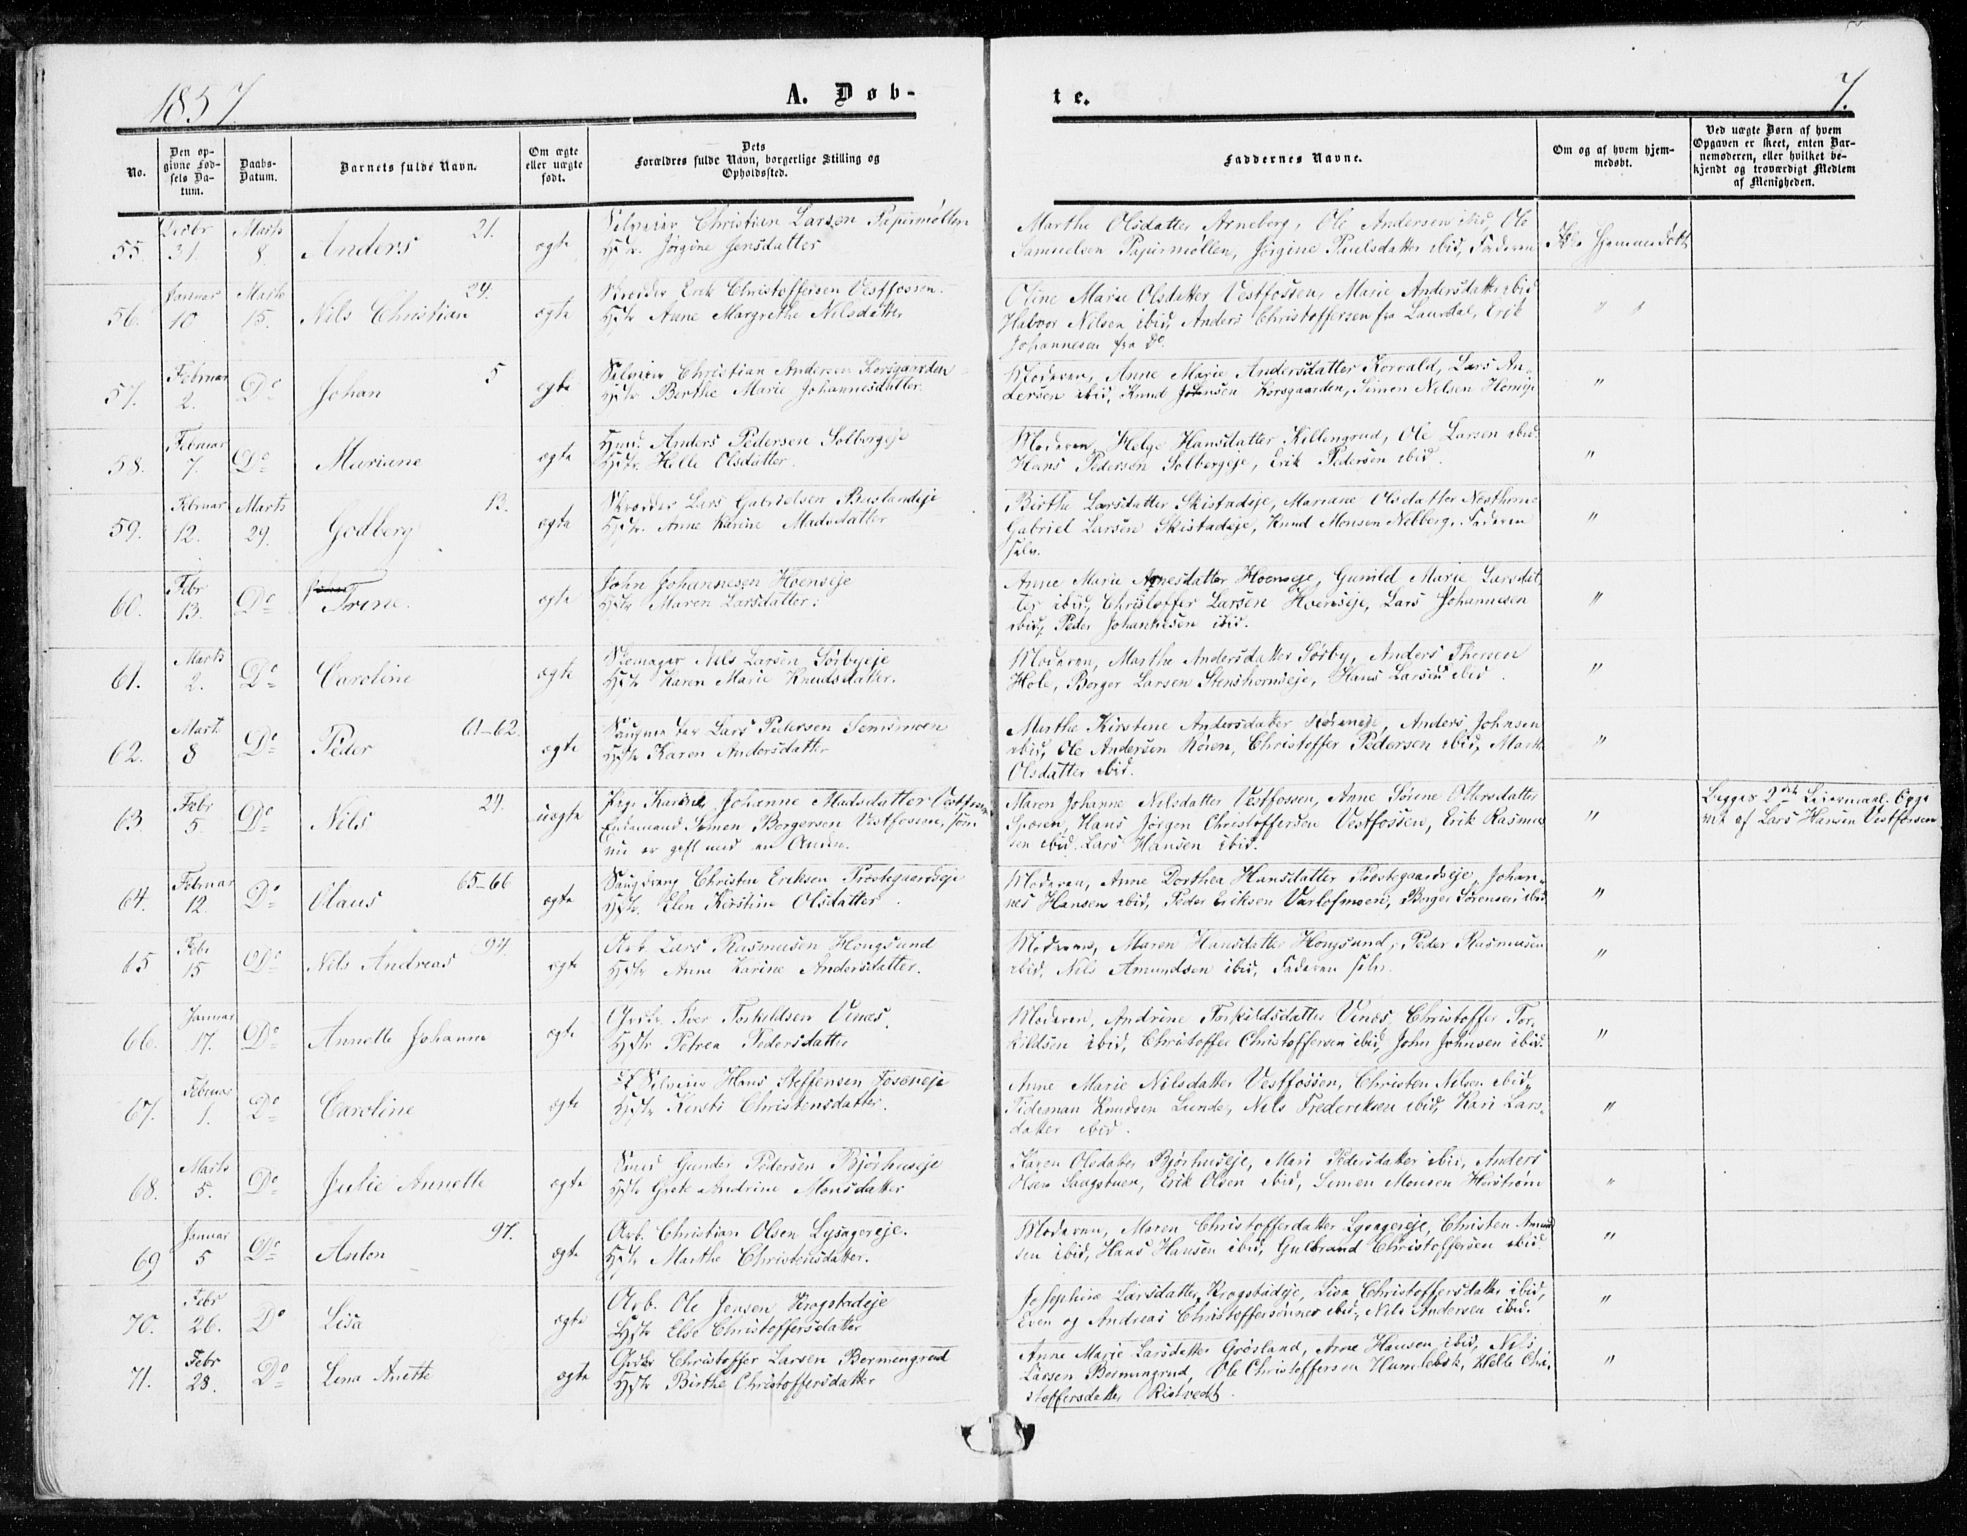 1857.
A. Døb-
te.
7.
No.
Den op-
givne Fød-
sels Da-
tum.
Daabs-
Datum.
Barnets fulde Navn.
Om ægte
eller uægte
født.
Dets
Forældres fulde Navn, borgerlige Stilling og
Opholdssted.
Faddernes Navne.
Om og af hvem hjem-
medøbt.
Ved uægte Børn af hvem
Opgaven er skeet, enten Bar-
nemoderen, eller hvilket be-
kjendt og troværdigt Medlem
af Menigheden.
55. Decbr 31. Marts 8. Anders 21. ægte
Christian Larsen Papirmøllen
Hstr. Jørgine Jensdatter
Marthe Olsdatter Arneberg, Ole Andersen ibid, Ole
Samuelsen Papirmøllen, Jørgine Paulsdatter ibid, Faderen
Ikke hjemmedøbt
56. Januar 10 Marts 15. Nils Christian 29. ægte
Skrædder Erik Christoffersen Vestfossen.
Hstr Anne Margrethe Nilsdatter
Oline Marie Olsdatter Vestfossen, Marie Andersdatter ibid
Halvor Nilsen ibid, Anders Christoffersen fra Laurdal, Erik
Johannesen fra Do.
" "
57. Februar 2. Do Johan 5 ægte
Christian Andersen Korsgaarden
Hstr Berthe Marie Johannesdatter.
Moderen, Anne Marie Andersdatter Korvald, Lars An-
dersen ibid, Knud Jensen Korsgaarden, Simen Nelsen
"
58. Februar 7 Do Mariane ægte
Husm. Anders Pedersen Solbergeje
Hstr. Helle Olsdatter.
Moderen, Helge Hansdatter Killengrud, Ole Larsen ibid.
Hans Pedersen Solbergeje, Erik Pedersen ibid.
"
59. Februar 12. Marts 29. Godberg 13. ægte
Skrædder Lars Gabrielsen Buslandeje
Hstr. Anne Karine Madsdatter
Birthe Larsdatter Skistadeje, Mariane Olsdatter
Gabriel Larsen Skistadeje, Knud Monsen Nelberg, Faderen
selv.
"
60. Febr 13. Do Trine. ægte
John Johannesen Hoenseje
Hstr Maren Larsdatter.
Anne Marie Arnesdatter Hoenseje, Gunild Marie Larsdat
ter ibid, Christoffer Larsen Hoenseje, Lars Johannesen
ibid, Peder Johannesen ibid.
"
61. Marts 2. Do Caroline ægte
Skomager Nils Larsen Sørbyeje
Hstr Karen Marie Knudsdatter.
Moderen, Marthe Andersdatter Sørby, Anders Thoresen
Hole, Borger Larsen Stenshorneje, Hans Larsen ibid.
"
62. Mart 8 Do Peder 61-62. ægte
Lars Pedersen Semsmoen
Hstr Karen Andersdatter
Marthe Kirstine Andersdatter, Anders Johnsen
ibid, Ole Andersen Røren, Christoffer Pedersen ibid, Marthe
Olsdatter ibid.
"
63. Febr 5 Do Nils 29. uægte
Pige Karine Johanne Madsdatter Vestfossen
Enkemand Simen Borgersen Vestfossen, som
nu er gift med en Anden.
Maren Johanne Nilsdatter Vestfossen, Anne Sørine Ottersdatter
Sporen, Hans Jørgen Christoffersen Vestfossen, Erik Rasmus
sen ibid. Lars Hansen ibid.
"
Begges 2det Leiermaal. Opgi
vet af Lars Hansen Vestfossen.
64. Februar 12. Do Olaus 65-66 ægte
Christen Eriksen Præstegaardseje
Hstr. Elen Kirstine Olsdatter.
Moderen, Anne Dorthea Hansdatter Præstegaardseje, Johan-
nes Hansen ibid, Peder Eriksen Varlofmoen, Borger Sørensen ibid
"
65 Febr 15 Do Nils Andreas 94. ægte
Arb Lars Rasmusen Hougsund
Hstr Anne Karine Andersdatter.
Moderen, Maren Hansdatter Hougsund, Peder Rasmusen
ibid, Nils Amundsen ibid, Faderen selv.
"
66. Januar 17. Do Annette Johanne ægte
Grdbr. Iver Torkildsen Vinæs.
Hstr Petrea Pedersdatter
Moderen, Andrine Torkildsdatter Vinæs, Christoffer Tor-
kildsen ibid, Christoffer Christoffersen ibid, John Johnsen ibid.
"
67. Februar 1. Do Caroline ægte
Hans Steffensen Foseneje
Hstr Kersti Christensdatter.
Anne Marie Nilsdatter Vestfossen, Christen Nelsen ibid,
Tideman Knudsen Lunde, Nils Frederiksen ibid, Kari Lars-
datter ibid.
"
68. Marts 5. Do Julie Annette ægte
Smed Gunder Pedersen Bjørhuseje
Hstr Grete Andrine Monsdatter
Karen Olsdatter Bjørhuseje, Mari Pedersdatter ibid, Anders
Olsen Saugstuen, Erik Olsen ibid, Simen Monsen
"
69 Januar 5 Do Anton 97. ægte
Arb. Christian Olsen Lysagereje.
Hstr Marthe Christensdatter.
Moderen, Maren Christofferdatter Lysagereje, Christen Amund
sen ibid, Hans Hansen ibid, Gulbrand Christoffersen ibid.
"
70. Febr 26. Do Lisa ægte
Arb. Ole Jensen Krogstadeje
Hstr Else Christoffersdatter
Josephine Larsdatter Krogstadeje, Lisa Christoffersdatter ibid,
Even og Andreas Christoffersønner ibid, Nils Andersen ibid.
"
71. Febr 28. Do Lena Anette ægte
Grdbr Christoffer Larsen Bermengrud
Hstr Birthe Christoffersdatter
Anne Marie Larsdatter Grøsland, Arne Hansen ibid, Nils
Larsen Bermengrud, Ole Christoffersen Humlebæk, Helle Chri-
stoffersdatter Ristvedt.
"